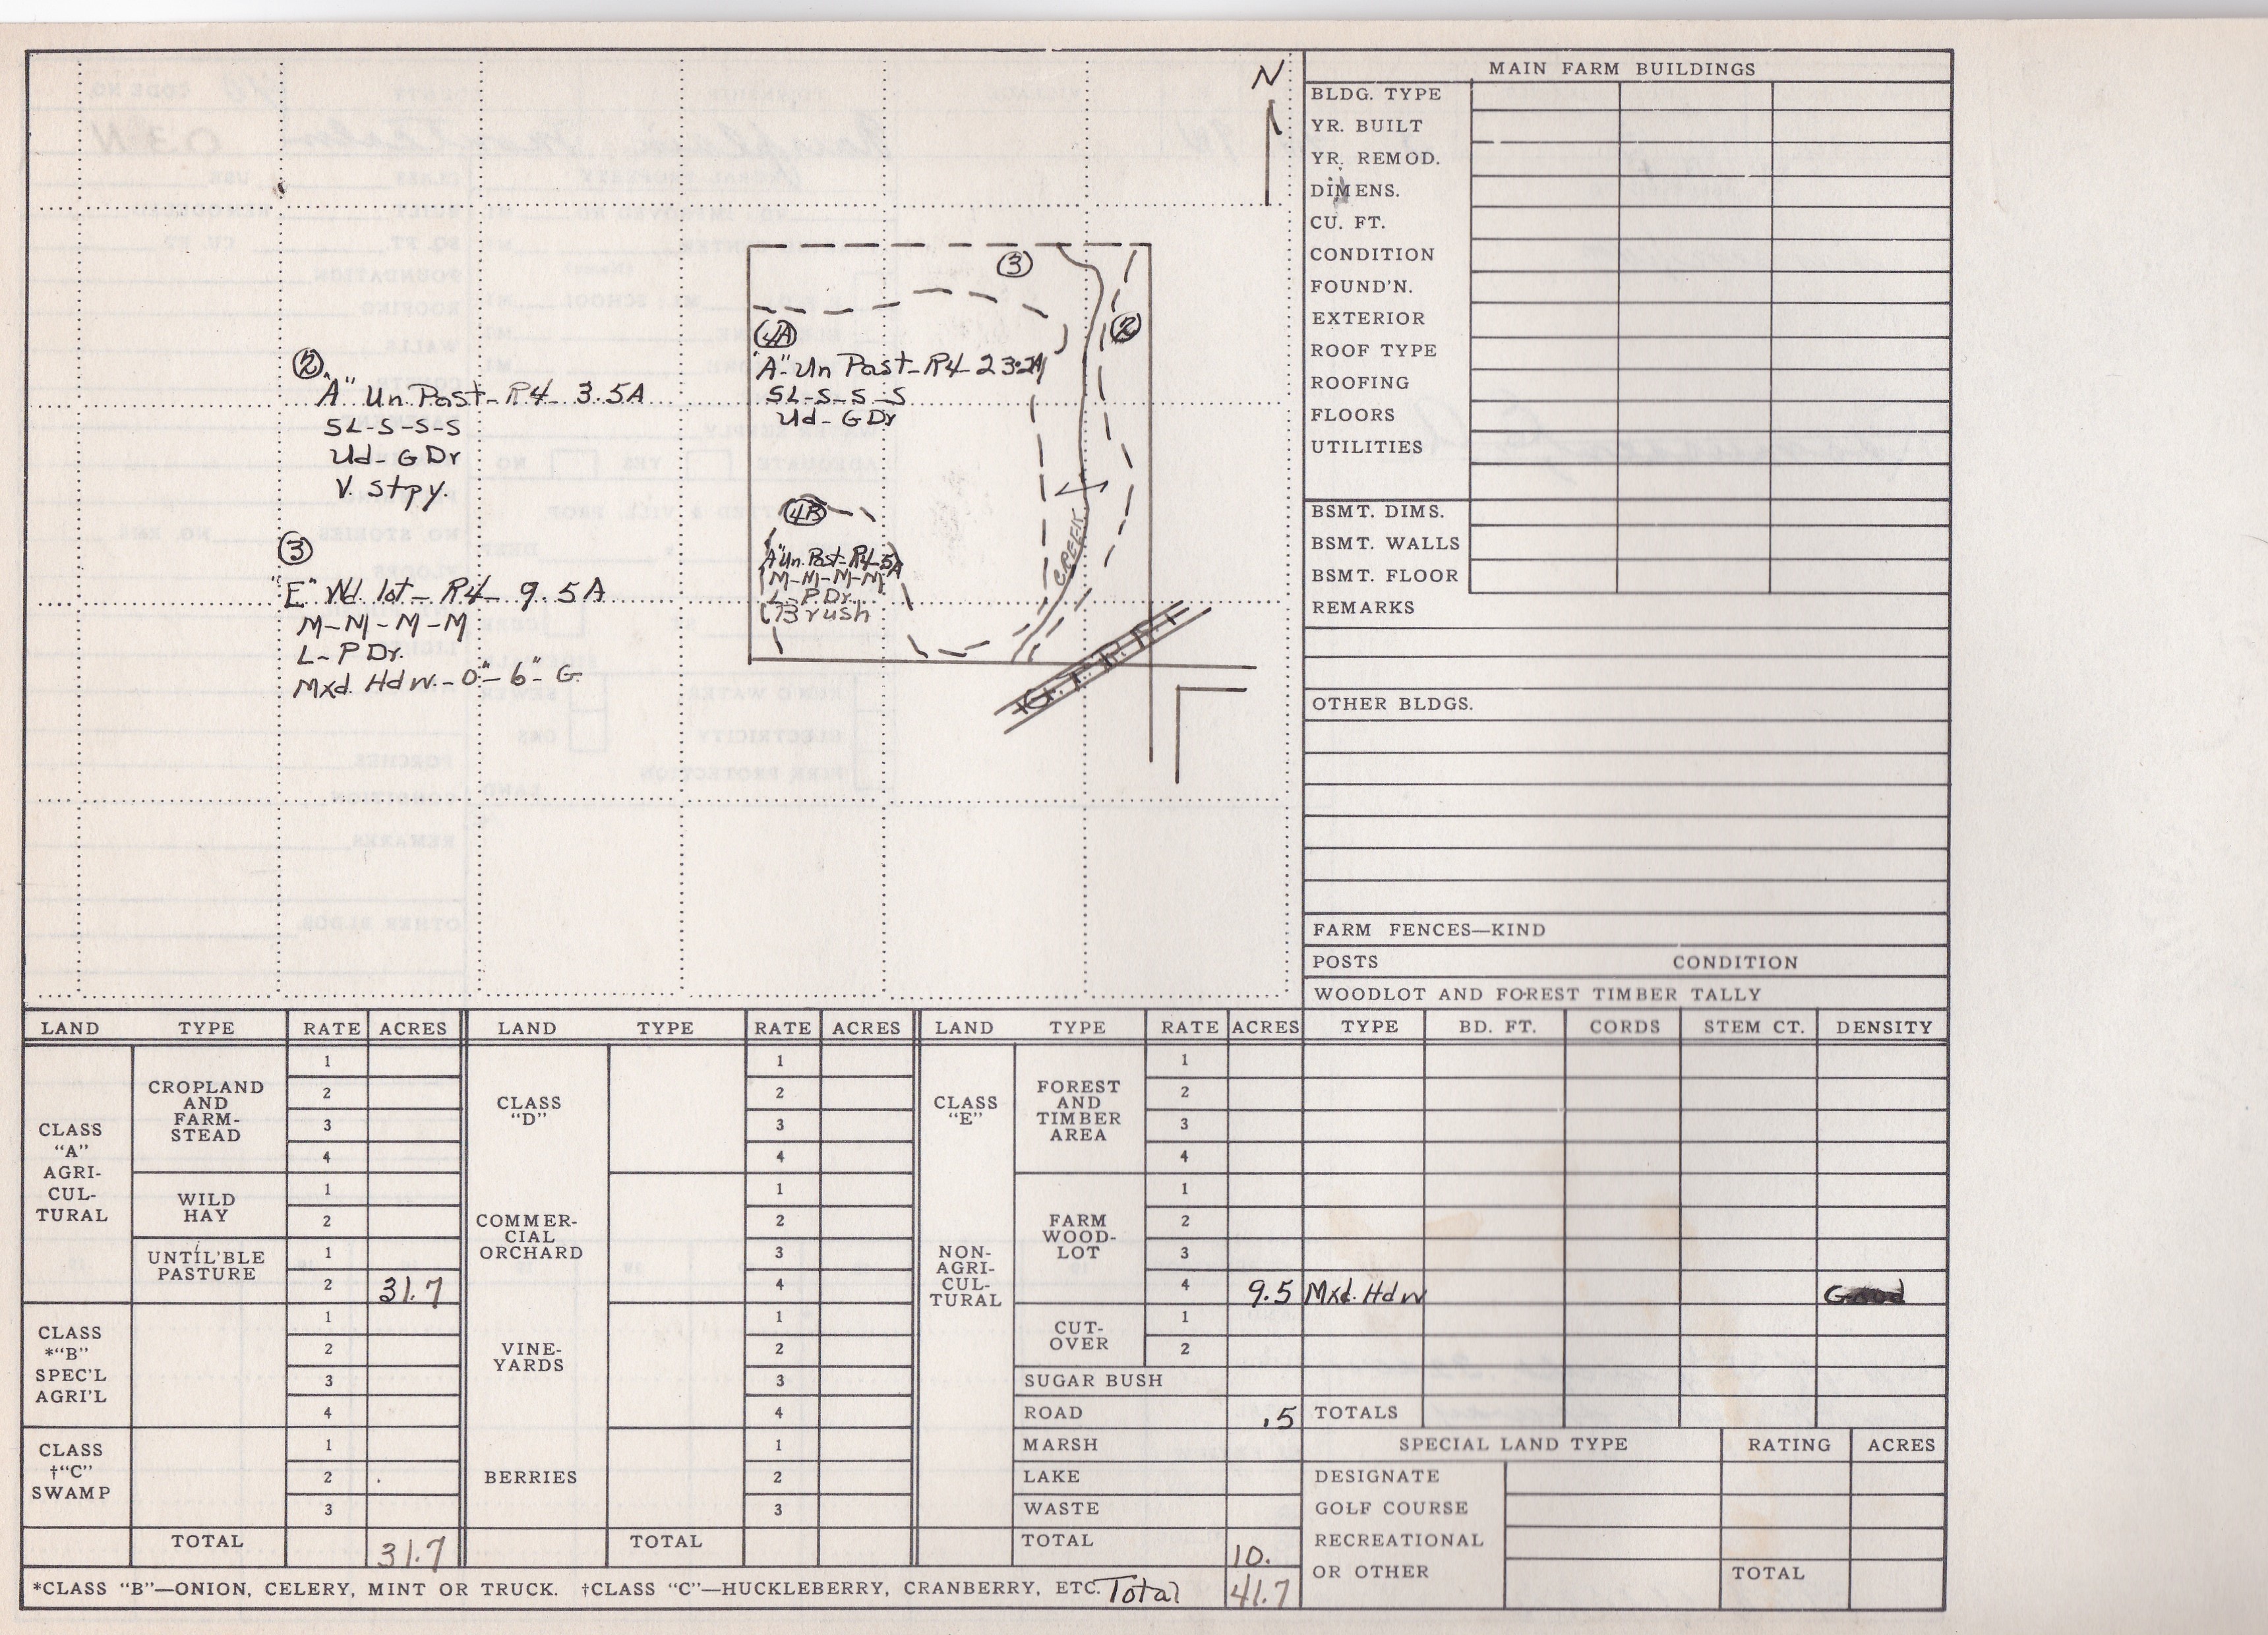 N
③
④A
②
"A" Un Past-R4-23.2A
SL-S-S-S
Ud-G Dr
②
"A" Un. Past-R4-3.5A
SL-S-S-S
Ud-G Dr
V. Stpy.
④B
"A" Un. Past-R4-5A
M-M-M-M
L-P Dr.
Brush
CREEK
③
"E" Wd. lot-R4-9.5A
M-M-M-M
L-P Dr.
Mxd. Hdw.-0"-6"-G
G.T.R.R.
MAIN FARM BUILDINGS
BLDG. TYPE
YR. BUILT
YR. REMOD.
DIMENS.
CU. FT.
CONDITION
FOUND'N.
EXTERIOR
ROOF TYPE
ROOFING
FLOORS
UTILITIES
BSMT. DIMS.
BSMT. WALLS
BSMT. FLOOR
REMARKS
OTHER BLDGS.
FARM FENCES—KIND
POSTS CONDITION
WOODLOT AND FOREST TIMBER TALLY
LAND TYPE RATE ACRES LAND TYPE RATE ACRES LAND TYPE RATE ACRES TYPE BD. FT. CORDS STEM CT. DENSITY
CLASS
"A"
AGRI-
CUL-
TURAL
CROPLAND
AND
FARM-
STEAD
1
2
3
4
WILD
HAY
1
2
UNTIL'BLE
PASTURE
1
2 31.7
CLASS
*"B"
SPEC'L
AGRI'L
1
2
3
4
CLASS
†"C"
SWAMP
1
2
3
TOTAL 31.7
CLASS
"D"
COMMER-
CIAL
ORCHARD
VINE-
YARDS
BERRIES
1
2
3
4
1
2
3
4
1
2
3
4
1
2
3
TOTAL
CLASS
"E"
NON-
AGRI-
CUL-
TURAL
FOREST
AND
TIMBER
AREA
1
2
3
4
FARM
WOOD-
LOT
1
2
3
4 9.5 Mxd. Hdw Good
CUT-
OVER
1
2
SUGAR BUSH
ROAD .5 TOTALS
MARSH
LAKE
WASTE
TOTAL 10.
SPECIAL LAND TYPE RATING ACRES
DESIGNATE
GOLF COURSE
RECREATIONAL
OR OTHER TOTAL
*CLASS "B"—ONION, CELERY, MINT OR TRUCK. †CLASS "C"—HUCKLEBERRY, CRANBERRY, ETC. Total 41.7